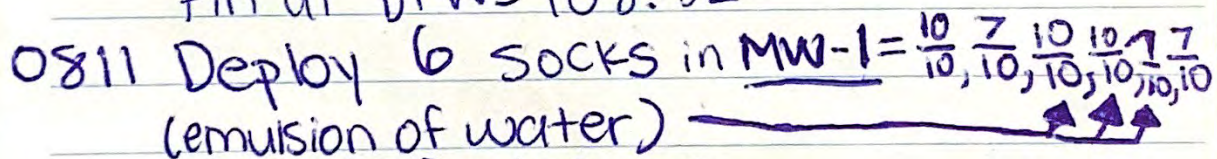 0811 Deploy 6 socks in MW-1 = 10/10, 7/10, 10/10, 10/10, 9/10, 7/10
(emulsion of water)